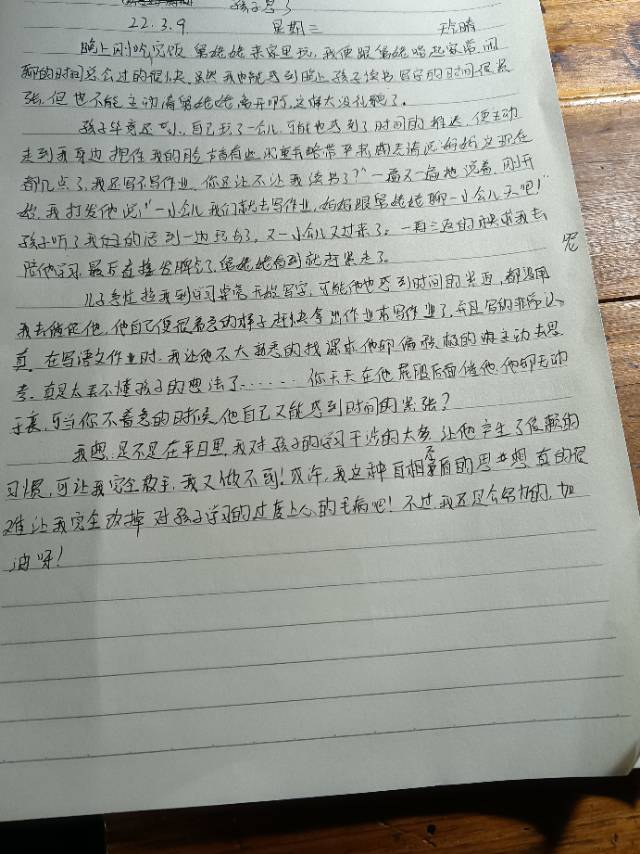 孩子急了
22.3.9 星期三 晴
晚上刚吃完饭 姥姥来家里玩,我便跟姥姥唠起家常,闲
聊的时间总会过的很快,虽然我也能感到晚上孩子读书写字的时间很紧
张,但也不能主动请姥姥离开啊,这样太没礼貌了。
孩子毕竟还小,自己玩了一会儿,可能也感到了时间的推迟,便主动
走到我身边,把住我的脸 妈妈现在
都几点了,我还写不写作业,你还让不让我读书了?"一遍又一遍地说着,刚开
始,我打发他说:"一小会儿我们就去写作业,妈妈跟姥姥聊一小会儿天吧!"
孩子听了我的话到一边玩去了,又一小会儿又过来了。一再三返的秧求我去
陪他学习,最后直接发脾气了,姥姥看到就赶紧走了。
儿子急忙拉我到 写字,可能他也感到时间的紧迫,都没用
我去催促他,他自己便很着急的样子赶快拿出作业本写作业了,并且写的非常认
真,在写语文作业时,我让他不太熟悉的找课本,他却偏积极的主动去思
考,真是太弄不懂孩子的想法了……你天天在他屁股后面催他,他却无动
于衷,可当你不着急的时候,他自己又能感到时间的紧张?
我想,是不是在平日里,我对孩子的学习干涉的太多,让他产生了依赖的
习惯,可让我完全放手,我又做不到!或许,我这种自相矛盾的思想真的很
难让我完全改掉对孩子学习的过度上心的毛病吧!不过,我还是会努力的,加
油呀!